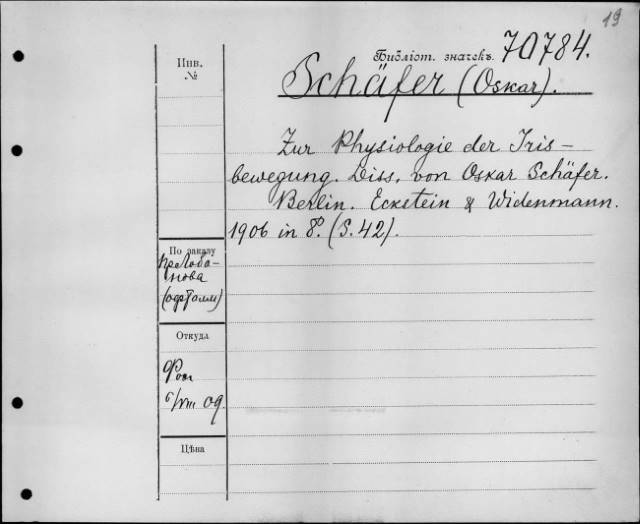 19
Инв.
№
Библіот. значекъ. 70784.
Schäfer (Oskar).
Zur Physiologie der Iris-
bewegung. Diss. von Oskar Schäfer.
Berlin. Eckstein & Widenmann.
1906 in 8º. (S. 42).
По заказу
Лоба-
нова
(офталм)
Откуда
6/VIII 09.
Цѣна